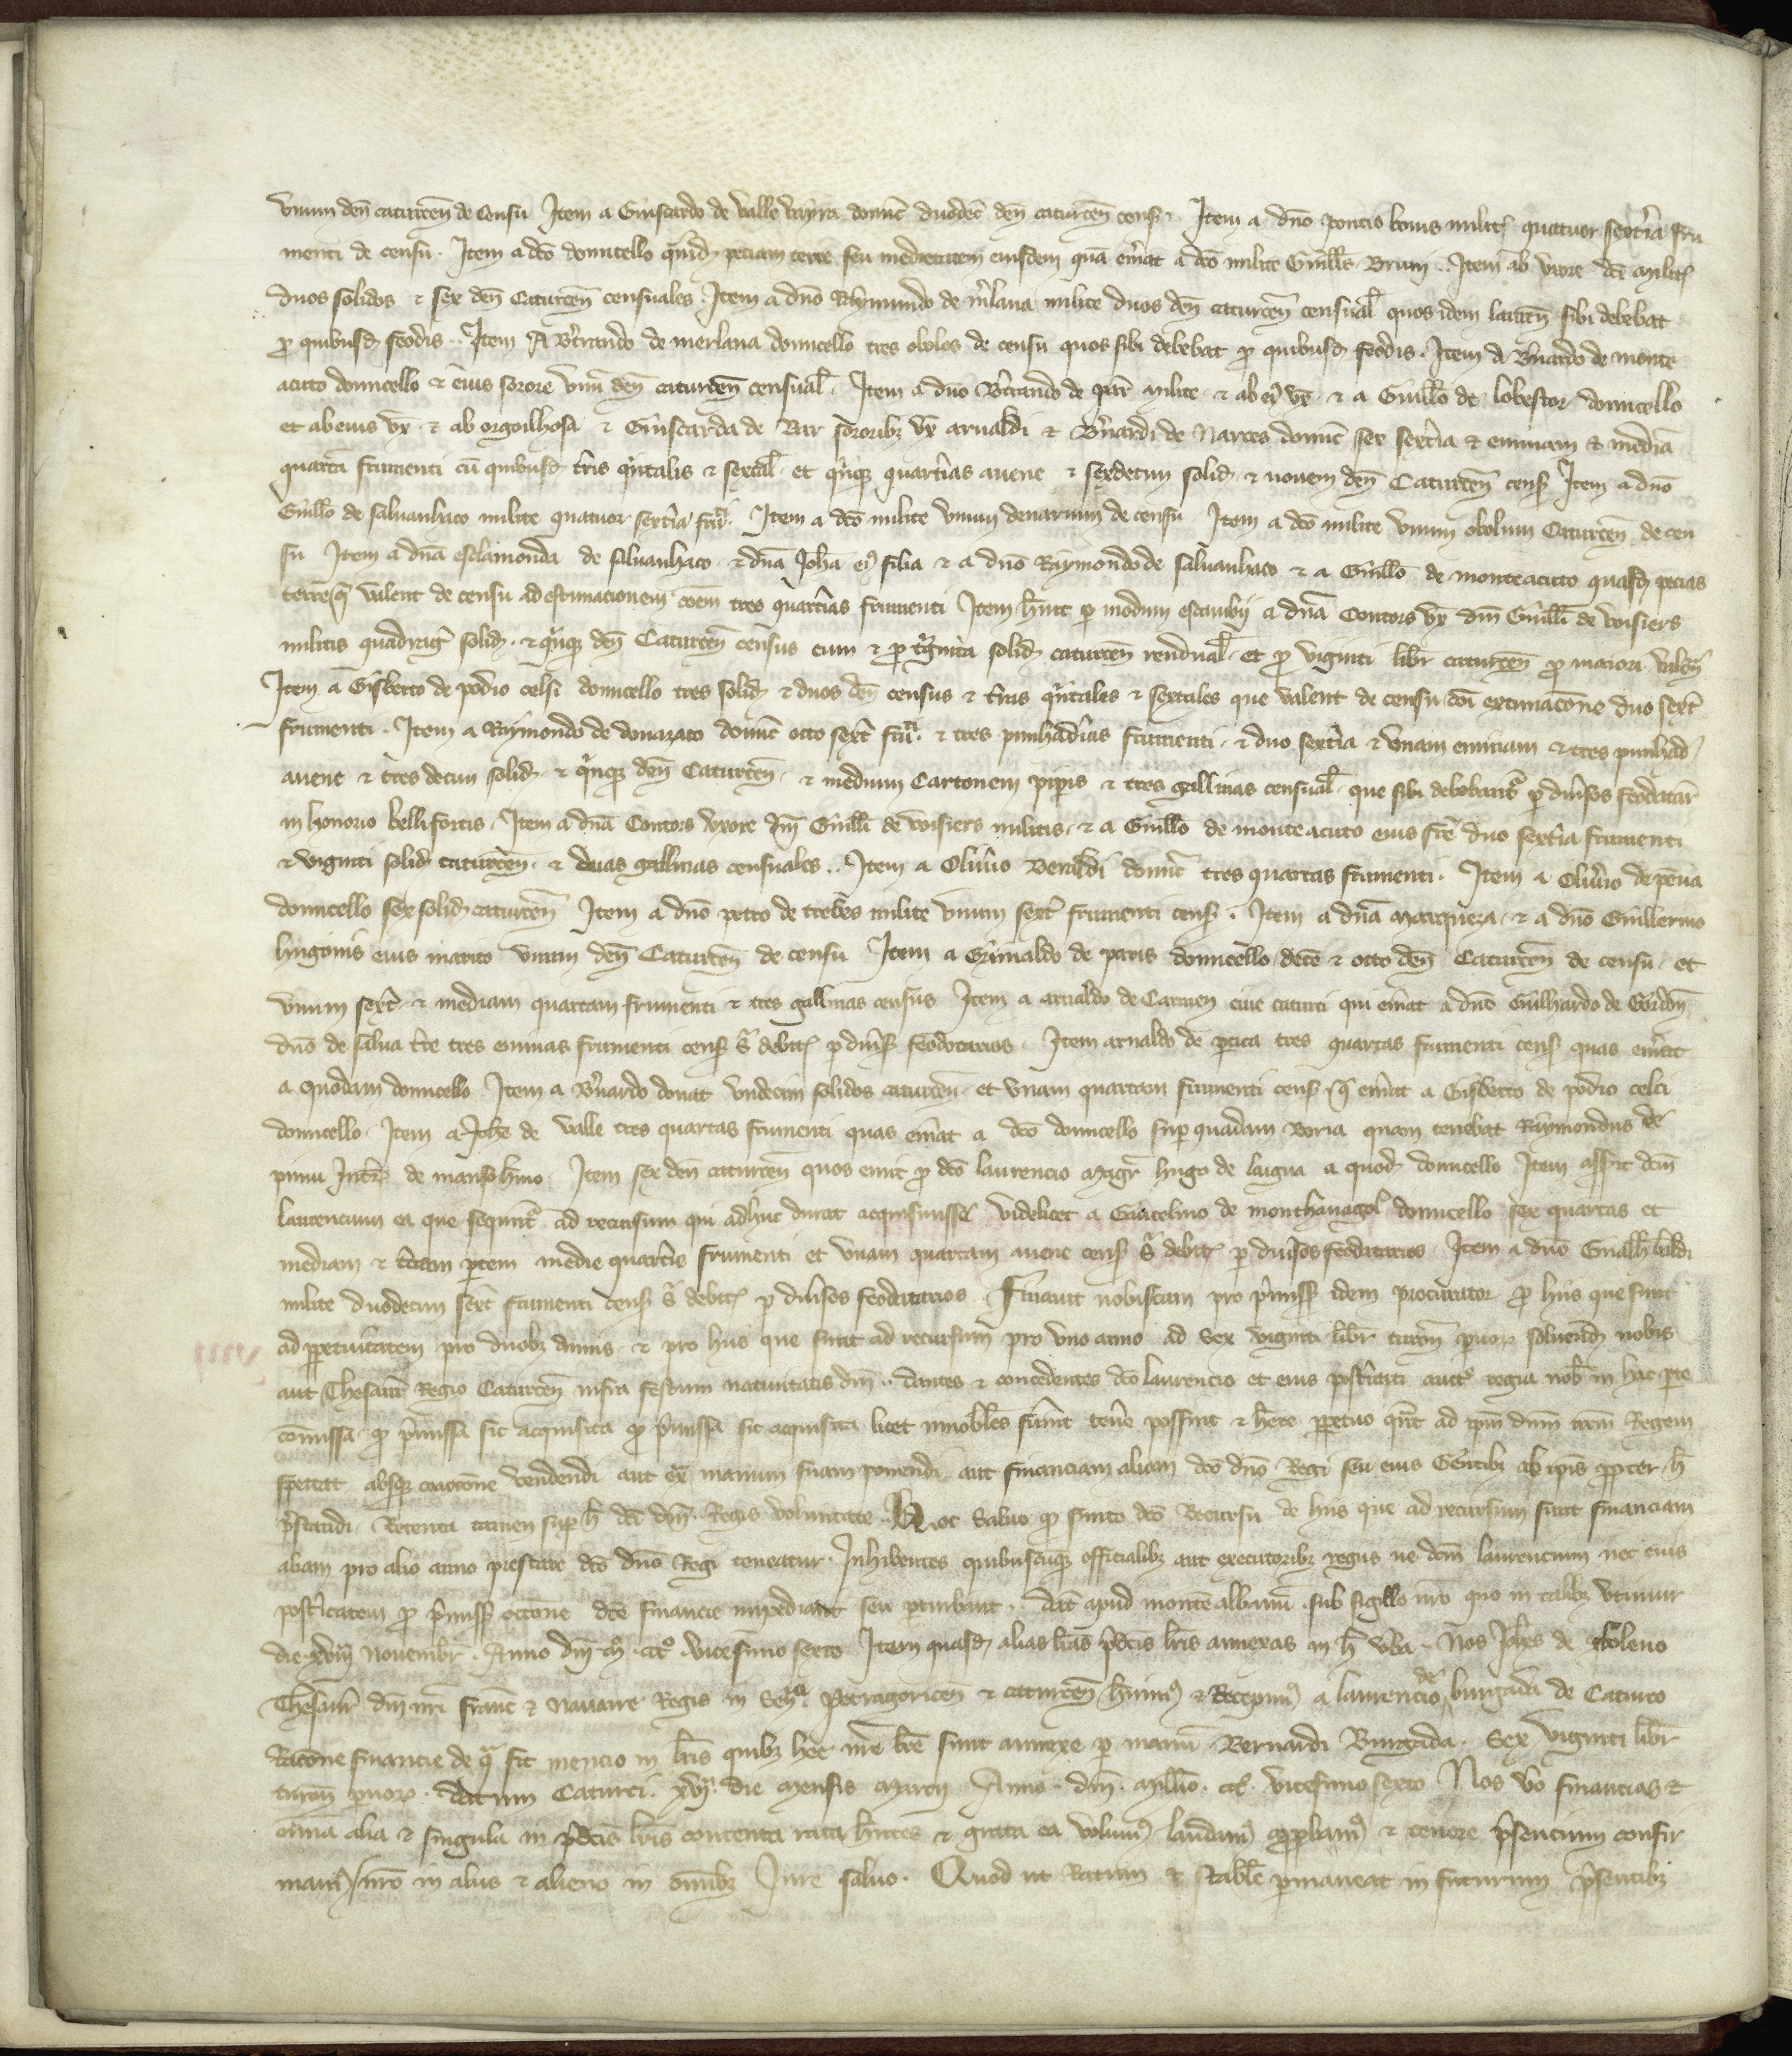 vnum den caturcen de censu Item a Guiscardo de valle domic duodec den caturcen cens Item a dno poncio milit quatuor sextia fru
menti de censu. Item a dco domicello quand peciam terre seu medietatem eiusdem qua emat a dco milite Guills Bruni.. Item ab vxore dci milit
duos solidos et sex den Caturcen censuales. Item a dno Raymundo de mlana milite duos den caturcen censual quos idem lauren sibi debebat
p quibusd feodis.. Item A Btrando de merlana domicello tres obolos de censu quos sibi debebat p quibusd feodis. Item a Bnardo de monte
acuto domicello et eius sorore vnu den caturcen censual. Item a dno Btrando de milite et ab ei vx. et a Guillo de lobestor domicello
et ab eius vx et ab orgoilhosa et Guiscarda de Bar sororibz vx arnaldi et Bnardi de Narces domic sex sextia et eminam et media
quarta frumenti cu quibusd tris qintalis et sextal et qinqz quartias auene et sexdecim solid et nouem den Caturcen cens Item a dno
Guillo de saluanhaco milite quatuor sextia frum. Item a dco milite vnum denarium de censu Item a dco milite vnum obolum Caturcen de cen
su Item a dna esclaimonda de saluanhaco et dna Joha ei filia et a dno Raymondo de saluanhaco et a Guillo de monteacuto quasd pecias
terre q valent de censu ad estimacionem coem tres quartias frumenti Item huit p modum escambij a dna Contors vx dni Guilli de voisiers
militis quadrag solid. et qinqz den Caturcen census cum et p tginta solid caturcen rendual et p viginti libr caturcen p maiori valen
Item a Gisberto de podio celsi domicello tres solid et duos den census et tras qintales et sextales que valent de censu coi extimacone duo sext
frumenti. Item a Raymondo de donazaco domic octo sext frum. et tres punhadias frumenti. et duo sextia et vnam eminam et tres punhad
auene et tres decim solid et qinqz den Caturcen. et medium Cartonem pipis et tres gallinas censual que sibi debebant p diuisos feodatar
in honorio bellifortis. Item a dna Contors vxore dni Guilli de voisiers militis et a Guillo de monteacuto eius fre duo sextia frumenti
et viginti solid caturcen. et duas gallinas censuales.. Item a Oliuio Beraldi domic tres quartas frumenti. Item a Oliuio de pena
domicello sex solid caturcen Item a dno petro de milite vnum sext frumenti cens. Item a dna marqueza. et a dno Guillermo
hugonis eius marito vnum den Caturcen de censu Item a Grimaldo de paris domicello dece et octo den Caturcen de censu. et
vnum sext. et mediam quartam frumenti et tres gallinas census Item a arnaldo de Carmen ciue caturci qui emat a dno Guilhardo de Gordon
dno de salua tre tres eminas frumenti cens s debit p diuis feodotarios. Item arnaldo de tres quartas frumenti cens quas emat
a quodam domicello Item a Bnardo donat vndecim solidos caturcen. et vnam quartam frumenti cens q emat a Gisberto de podio celci
domicello. Item a Johe de valle tres quartas frumenti quas emat a dco domicello sup quadam Boria quam tenebat Raymondus de
pinu de manso Item sex den caturcen quos emit p dco laurencio magr hugo de a quod domicello Item assit dcm
laurencium ea que sequnt ad recursum qui adhuc durat acquisiuisse videlicet a Gaucelino de monthanagol domicello sex quartas et
mediam et tciam ptem medie quartie frumenti et vnam quartam auene cens s debit p diuisos feodatarios. Item a dno
milite duodecim sext frumenti cens s debit p diuisos feodatarios. Finauit nobiscum pro pmiss idem procurator p hiis que sunt
ad ppetuitatem pro duobz annis. et pro hiis que sunt ad recursum pro vno anno ad sex viginti libr turon paruor soluend nobis
aut Thesaur Regio Caturcen infra festum natiuitatis dni.. dantes et concedentes dco laurencio et eius postitati auct regia nob in hac pte
comissa. q pmissa sic acquisita q pmissa sic acquisita licet inmobiles fuint tene possint et here ppetuo qnt ad ipm dnm nrm Regem
spectat absqz coactone vendendi aut ex manum suam ponendi aut financiam aliam dco dno Regi seu eius Gentibz ab ipis ppter h
pstandi. Retenta tamen sup h dci dni Regis voluntate. Hoc saluo q finito dco Recursu de hiis que ad recursum sunt financiam
aliam pro alio anno prestare dco dno Regi teneatur. Inhibentes quibuscuqz officialibz aut executoribz regiis ne dcm laurencium nec eius
posticatem p pmiss occone dce financie impediant seu pturbent. dat apud montealbanu. sub sigillo nro quo in talibz vtimur
die xviij nouembr. Anno dni m. ccc. vicesimo sexto Item quasd alias lras pdcis lris annexas in h vba. Nos Johes de
Thesaur dni nri franc et nauarre Regis in Sen Petragoricen et caturcen huim et Recepim a laurencio de burgada de Caturco
Racone financie de qa fit mencio in lris quibz hec nre lre sunt annexe p manu Bernardi Burgada. sex viginti libr
turon puor. datum Caturci. xvj die mensis marcij Anno. dni. millio. ccc. vicesimo sexto Nos vo financias et
omia alia et singula in pdcis lris contenta rata hntes et grata ea volum laudam appbam et tenore psencium confir
mam nro in aliis et alieno in omibz Jure saluo. Quod ut Ratum et stabile pmaneat in futurum psentibz